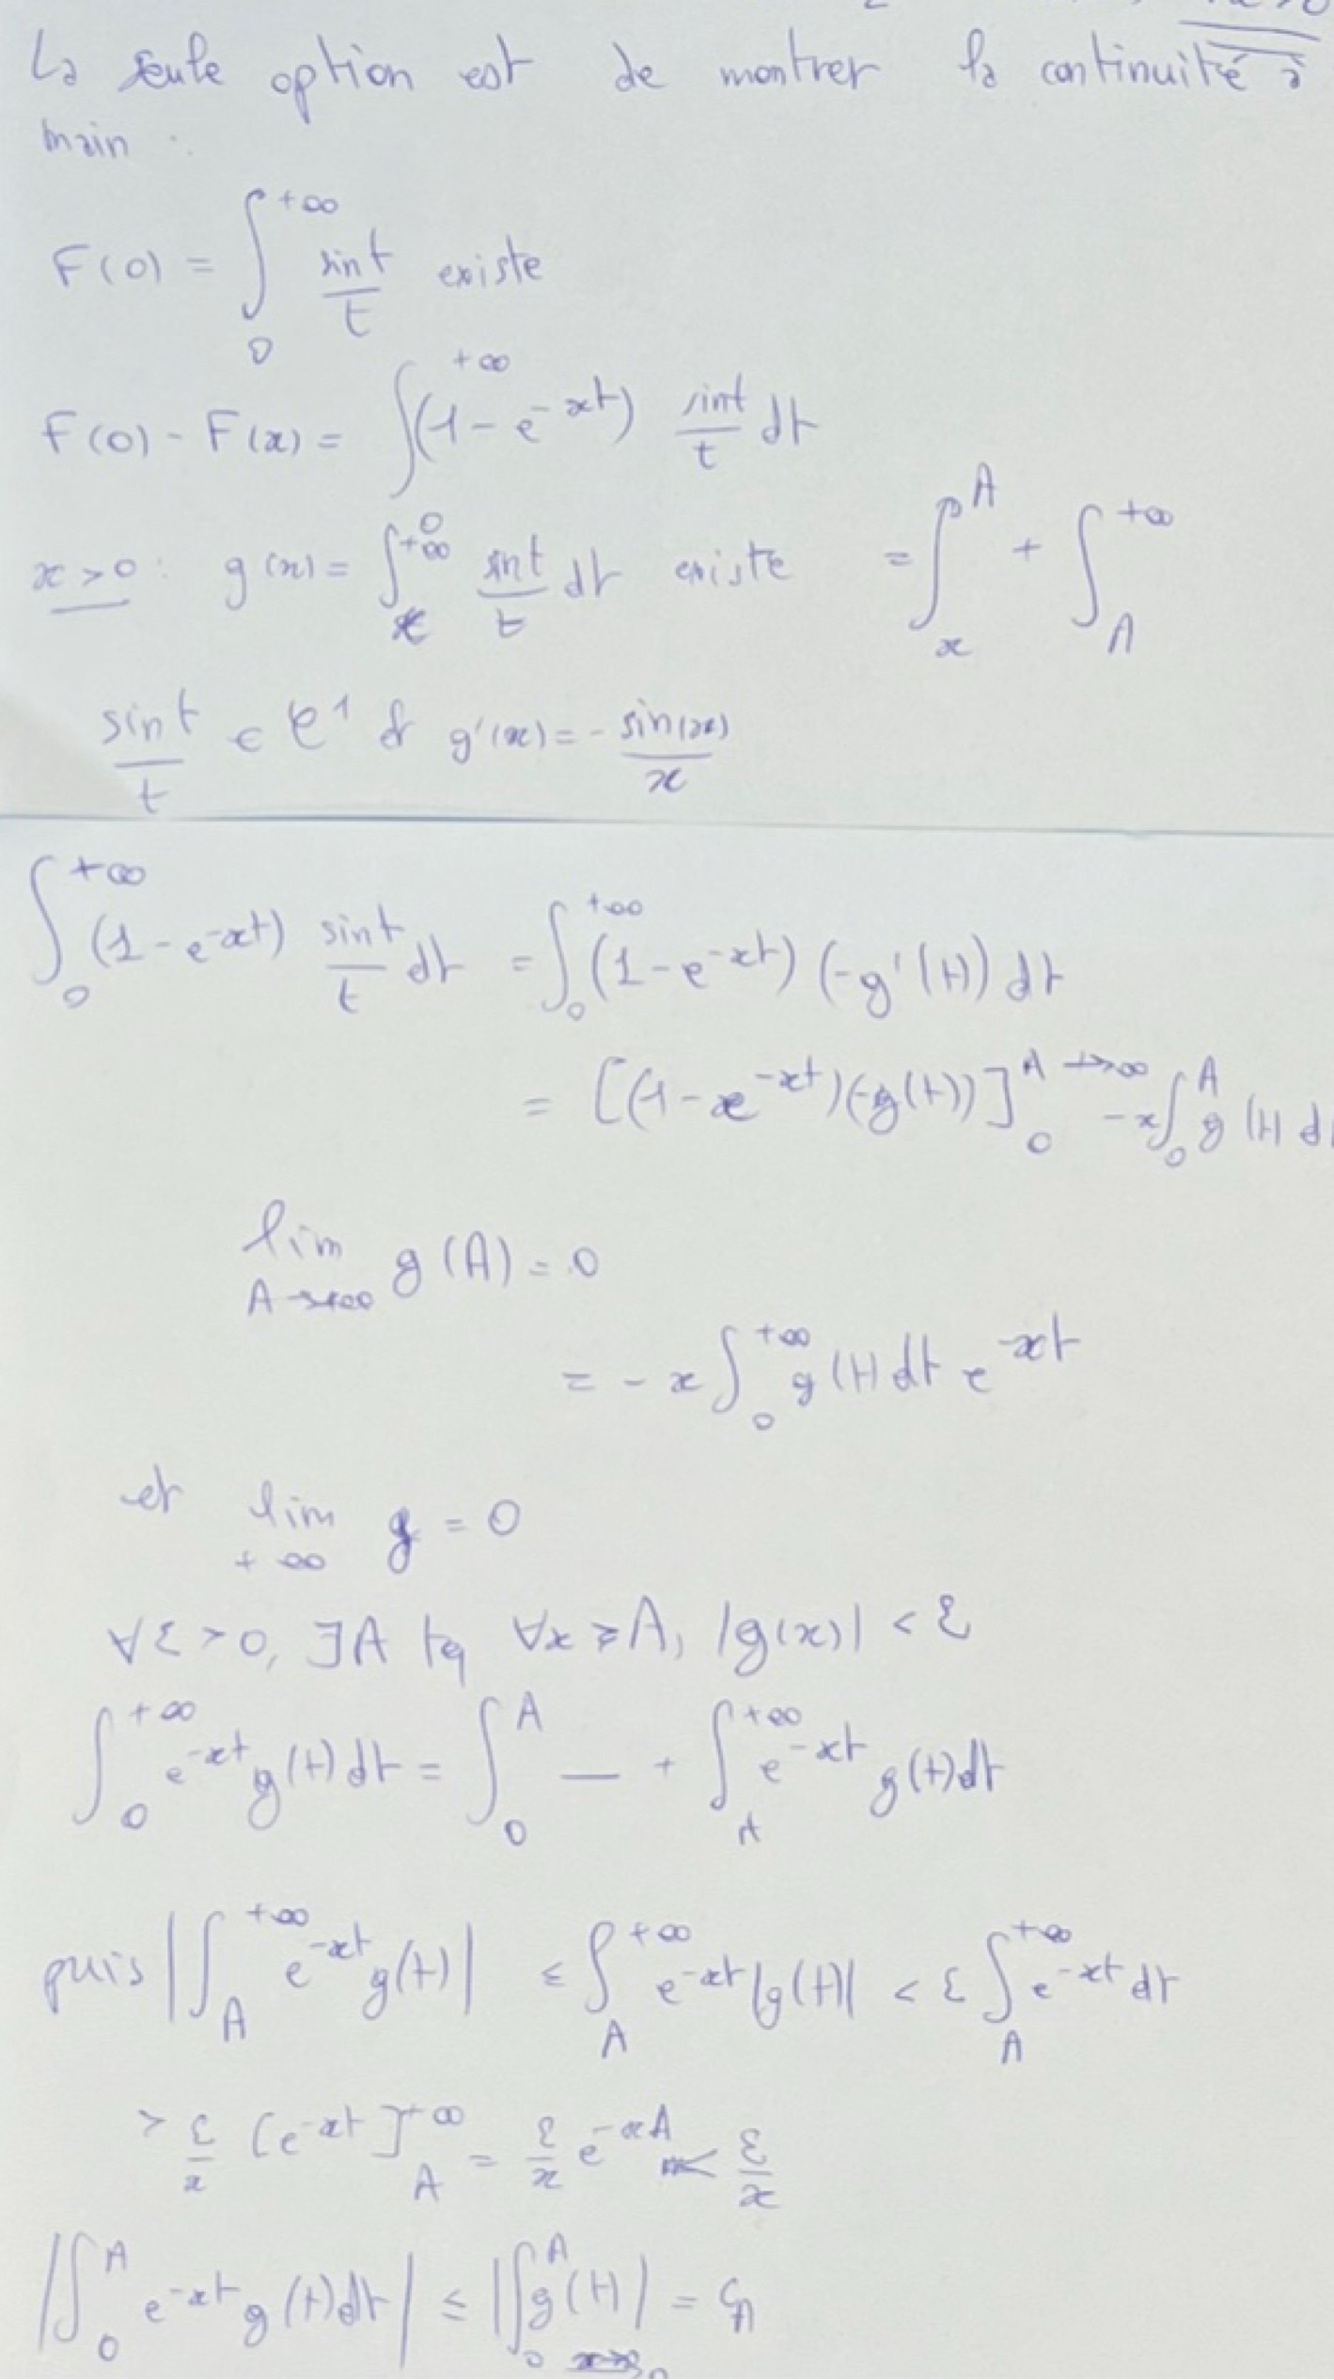 La seule option est de montrer la continuité à
main :
F(0) = ∫_0^{+∞} sin t / t existe
F(0) - F(x) = ∫_0^{+∞} (1 - e^{-xt}) sin t / t dt
x > 0 : g(x) = ∫_x^{+∞} sin t / t dt existe = ∫_x^A + ∫_A^{+∞}
sin t / t ∈ C^1 & g'(x) = - sin(x) / x
∫_0^{+∞} (1 - e^{-xt}) sin t / t dt = ∫_0^{+∞} (1 - e^{-xt}) (-g'(t)) dt
= [(1 - e^{-xt})(-g(t))]_0^{A → +∞} - x ∫_0^A g(t) d
lim_{A → +∞} g(A) = 0
= - x ∫_0^{+∞} g(t) dt e^{-xt}
et lim_{+∞} g = 0
∀ε > 0, ∃A tq ∀x ≥ A, |g(x)| < ε
∫_0^{+∞} e^{-xt} g(t) dt = ∫_0^A — + ∫_A^{+∞} e^{-xt} g(t) dt
puis |∫_A^{+∞} e^{-xt} g(t)| ≤ ∫_A^{+∞} e^{-xt} |g(t)| < ε ∫_A^{+∞} e^{-xt} dt
> ε/x [e^{-xt}]_A^{+∞} = ε/x e^{-xA} < ε/x
|∫_0^A e^{-xt} g(t) dt| ≤ |∫_0^A g(t)| = C_A